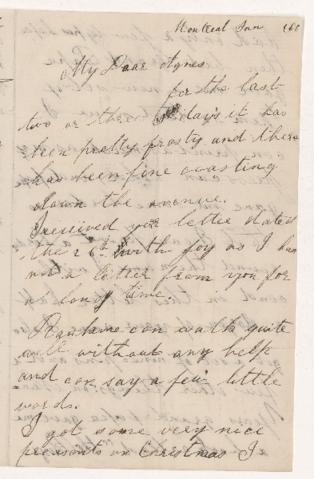 Montreal Jan
My Dear Agnes
for the last
two or three days it has
been pretty frosty and there
has been fine coasting
down the avenue.
I received your letter dated
the 26th with joy as I had
not a letter from you for
a long time.
can walk quite
well without any help
and can say a few little
words.
I got some very nice
presants on Christmas I